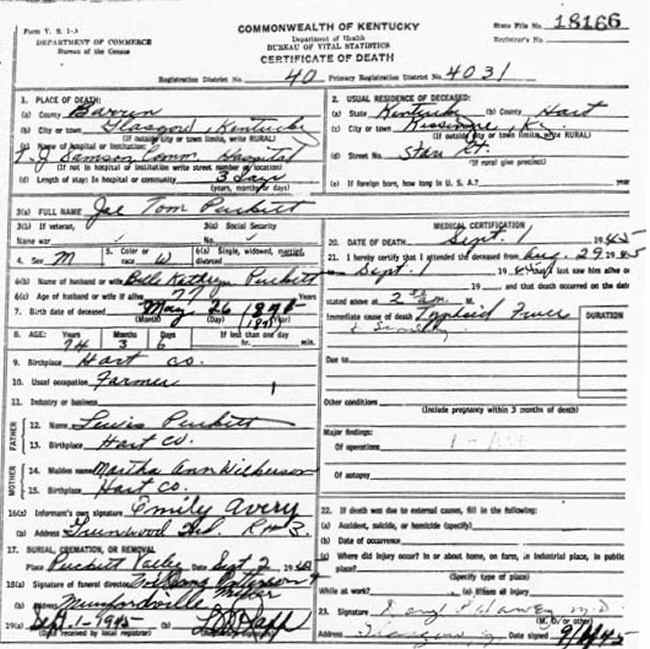 Form V. S. 1-A
DEPARTMENT OF COMMERCE
Bureau of the Census
COMMONWEALTH OF KENTUCKY
Department of Health
BUREAU OF VITAL STATISTICS
CERTIFICATE OF DEATH
State File No. 18166
Registrar's No.
Registration District No. 40 Primary Registration District No. 4031
1. PLACE OF DEATH:
(a) County Barren
(b) City or town Glasgow, Kentucky
(If outside city or town limits, write RURAL)
(c) Name of hospital or institution:
T. J. Samson Comm. Hospital
(If not in hospital or institution write street number or location)
(d) Length of stay: In hospital or community 3 days
(years, months or days)
2. USUAL RESIDENCE OF DECEASED:
(a) State Kentucky (b) County Hart
(c) City or town Ky.
(If outside city or town limits, write RURAL)
(d) Street No. Star Rt.
(If rural give precinct)
(e) If foreign born, how long in U. S. A.? years
3(a) FULL NAME Joe Tom Puckett
3(b) If veteran,
Name war
3(c) Social Security
No.
4. Sex M
5. Color or race W
6(a) Single, widowed, married, divorced
6(b) Name of husband or wife Belle Kathryn Puckett
6(c) Age of husband or wife if alive 77 Years
7. Birth date of deceased May 26
(Month) (Day) (Year)
(1871)
8. AGE: Years Months Days If less than one day
74 3 6 hr. min.
9. Birthplace Hart Co.
10. Usual occupation Farmer
11. Industry or business
FATHER
12. Name Lewis Puckett
13. Birthplace Hart Co.
MOTHER
14. Maiden name Martha Ann Wilkerson
15. Birthplace Hart Co.
16(a) Informant's own signature Emily Avery
(b) Address Greenwood Ind. R # 3.
17. BURIAL, CREMATION, OR REMOVAL
Place Puckett Date Sept 2 1945
18(a) Signature of funeral director
(b) Address Munfordville
19(a) Sept. 1-1945 (b)
(Date received by local registrar) (Registrar's signature)
MEDICAL CERTIFICATION
20. DATE OF DEATH Sept. 1 1945
21. I hereby certify that I attended the deceased from Aug. 29 1945
Sept. 1 1945, that I last saw him alive on
19 and that death occurred on the date
stated above at 2 am. M.
Immediate cause of death Typhoid Fever
& Senility
DURATION
Due to
Other conditions
(Include pregnancy within 3 months of death)
Major findings:
Of operations
Of autopsy
22. If death was due to external causes, fill in the following:
(a) Accident, suicide, or homicide (specify)
(b) Date of occurrence
(c) Where did injury occur? In or about home, on farm, in industrial place, in public
place?
(Specify type of place)
While at work? (e) Means of injury
23. Signature M.D.
(M. D. or other)
Address Glasgow, Ky Date signed